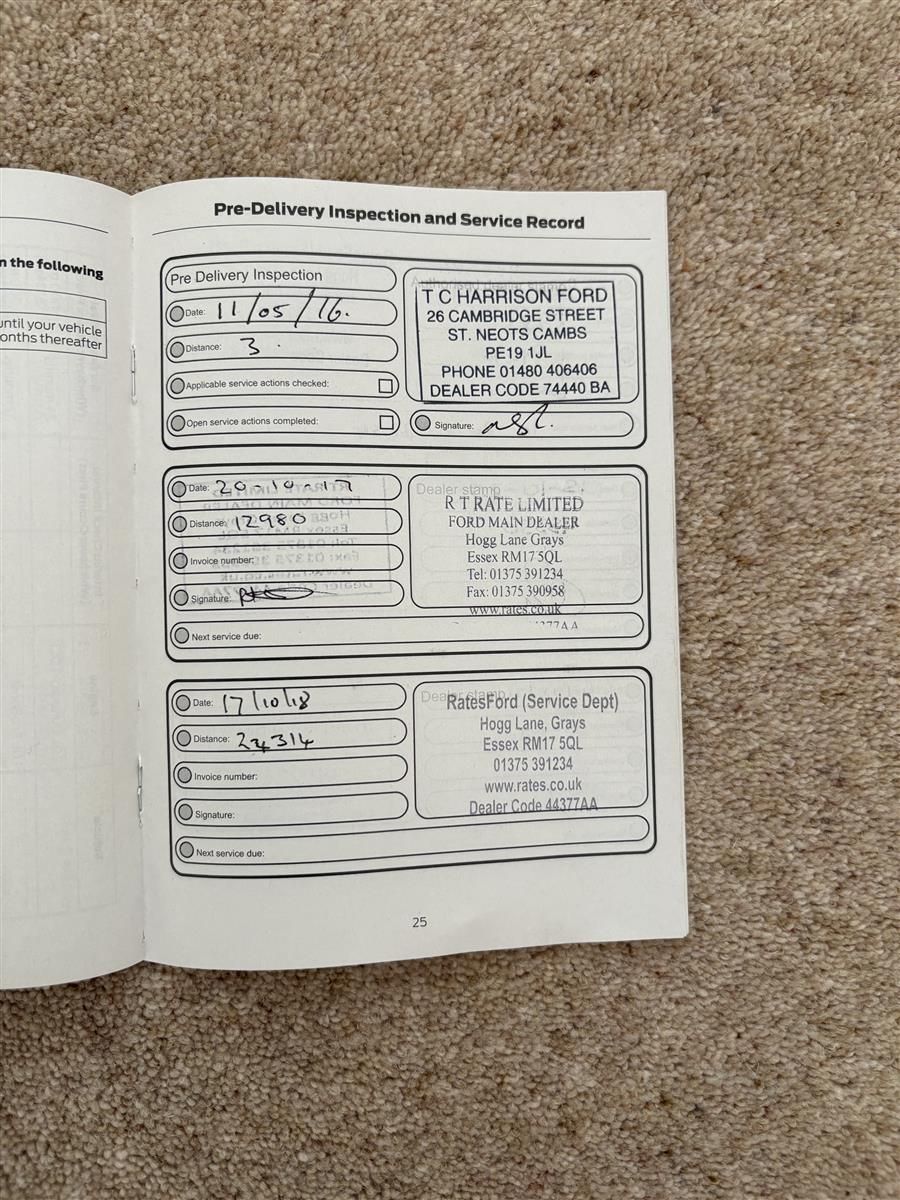 n the following
until your vehicle
onths thereafter
Pre-Delivery Inspection and Service Record
Pre Delivery Inspection
Date: 11/05/16.
Distance: 3.
Applicable service actions checked:
Open service actions completed:
Authorised dealer stamp
T C HARRISON FORD
26 CAMBRIDGE STREET
ST. NEOTS CAMBS
PE19 1JL
PHONE 01480 406406
DEALER CODE 74440 BA
Signature:
Date: 20-10-17
Distance: 12980
Invoice number:
Signature:
Next service due:
Dealer stamp
R T RATE LIMITED
FORD MAIN DEALER
Hogg Lane Grays
Essex RM17 5QL
Tel: 01375 391234
Fax: 01375 390958
www.rates.co.uk
377AA
Date: 17/10/18
Distance: 24314
Invoice number:
Signature:
Next service due:
Dealer stamp
RatesFord (Service Dept)
Hogg Lane, Grays
Essex RM17 5QL
01375 391234
www.rates.co.uk
Dealer Code 44377AA
25